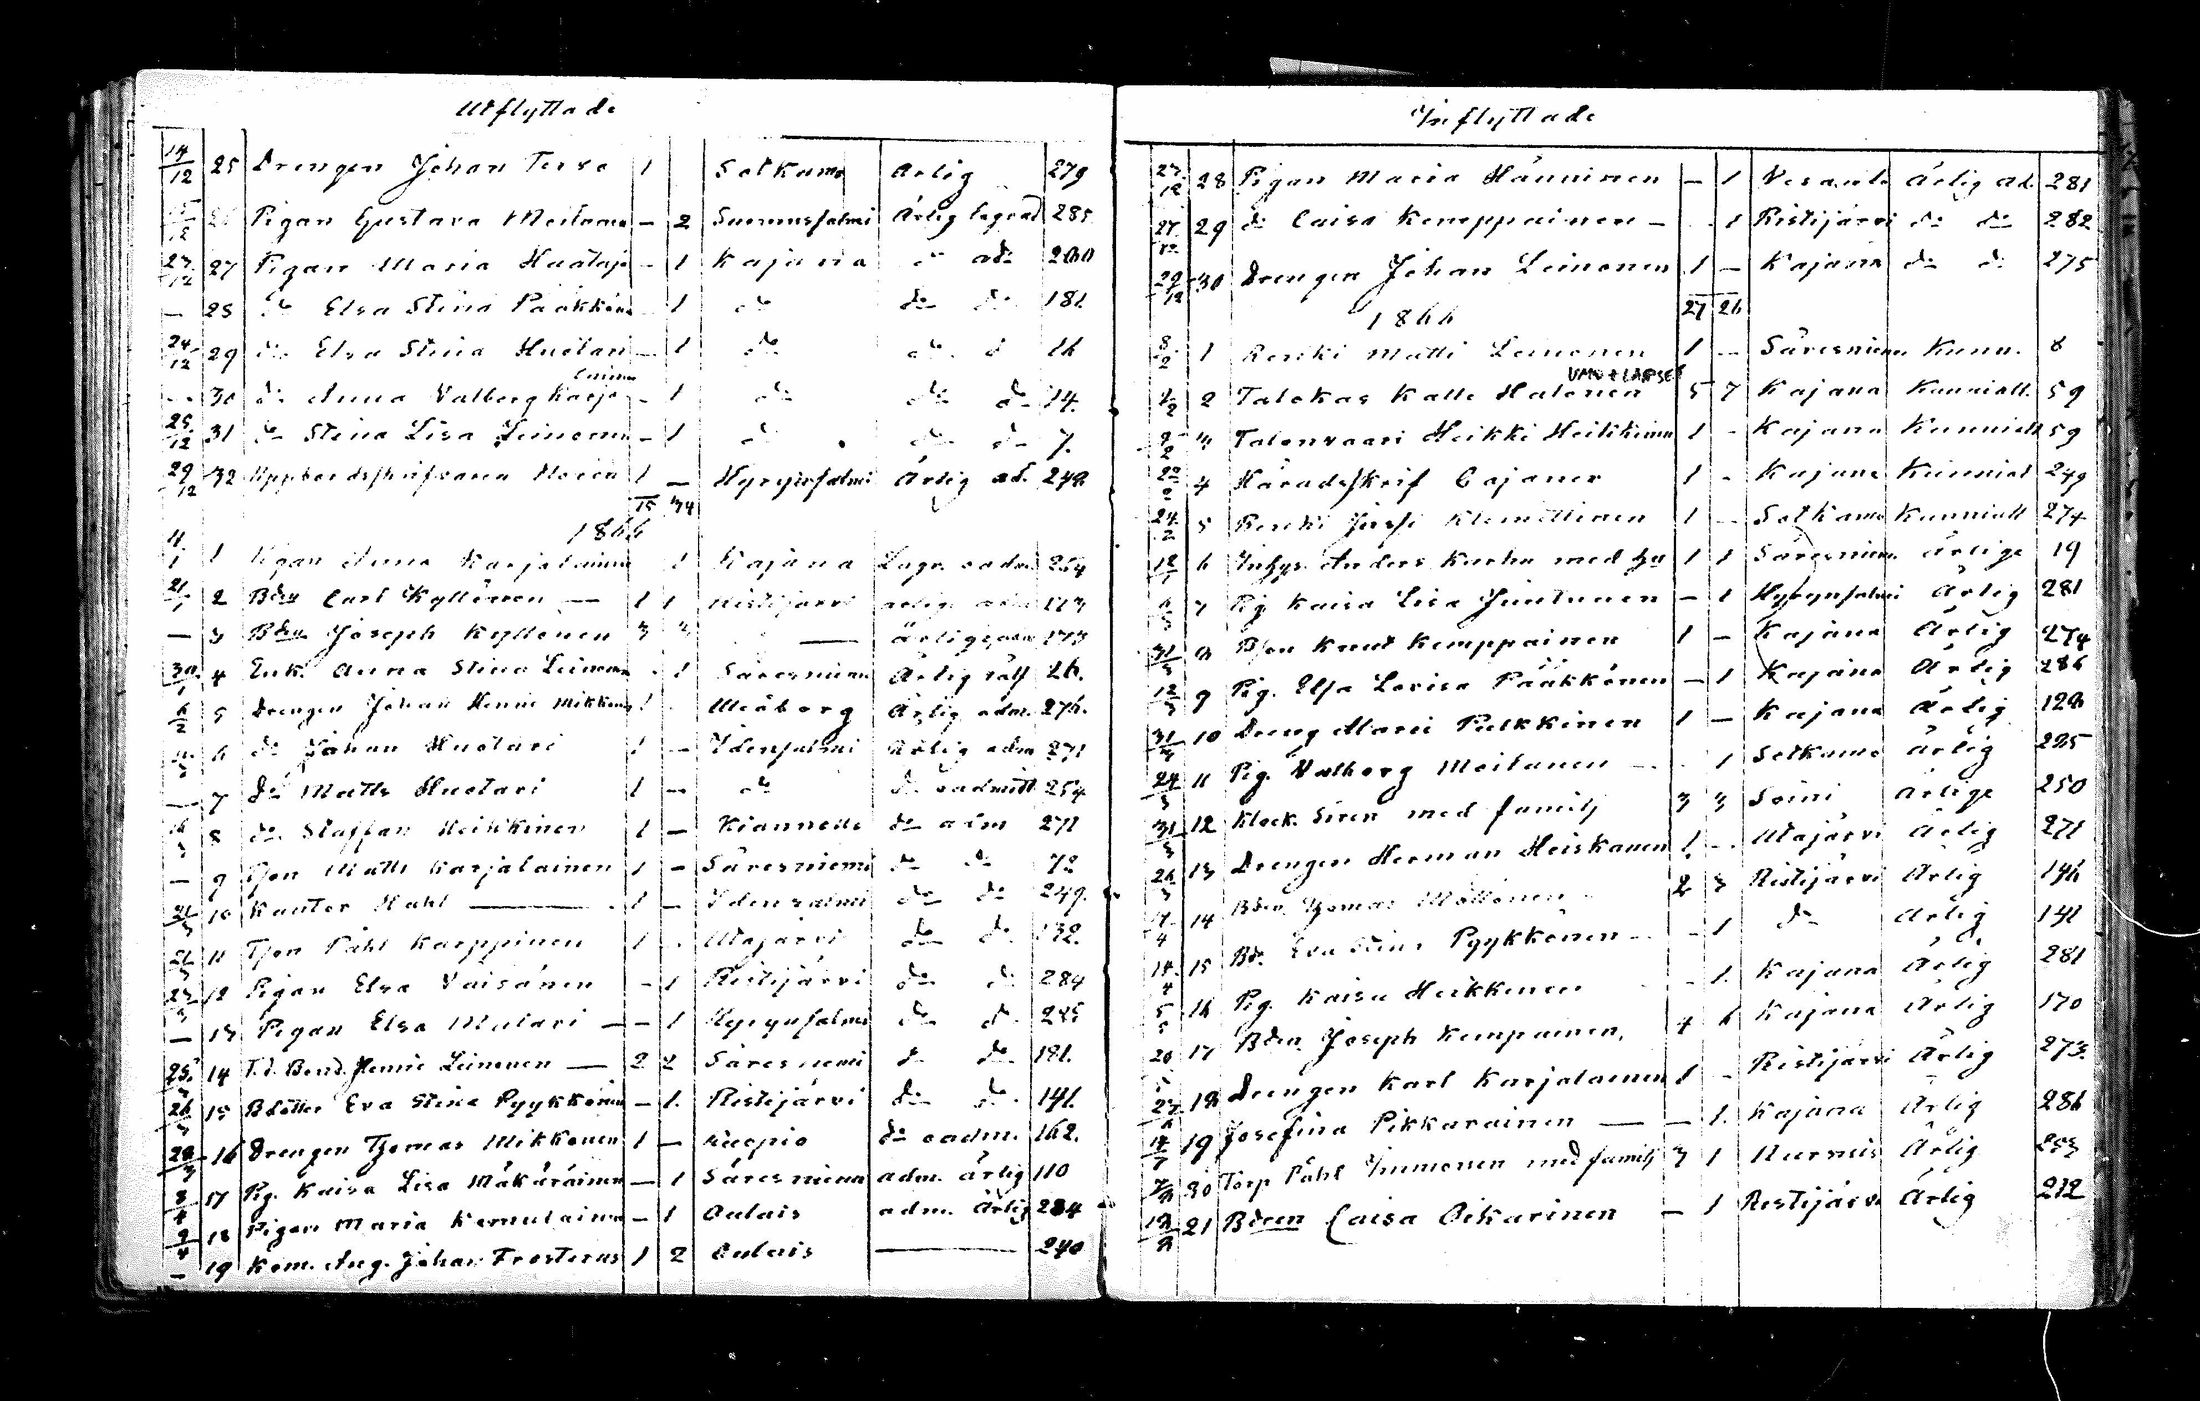 Utflyttade
14/12 25 Drengen Johan Tervo 1 Sotkamo Ärlig 279
Pigan Gustava Moilanen – 2 Suomussalmi Ärlig 285
23/12 27 Pigan Maria Huotaj – 1 Kajana do ad:
— 28 do Elsa Stina Pääkkön 1 do do do 181
24/12 29 do Elsa Stina Huotari – 1 do do d 16
lainen
-- 30 do Anna Valborg Karja – 1 do do do 14.
25/12 31 do Stina Lisa Leinonen – 1 do do do 7.
29/12 32 Maria 1 — Hyrynsalmi Ärlig ad. 249
15 34
1866
11/1 1 Pigan Anna Karjalainen 1 Kajana 254
21/1 2 Bdn Carl Kyllönen — 1 1 Ristijärvi ärlig 173
— 3 Bdn Joseph Kyllönen 3 3 — 173
30/1 4 Enk. Anna Stina Leinonen - 1 Säresniemi Ärlig 26.
6/2 5 Drengen Johan Henric Mikkonen 1 Uleåborg Ärlig adm. 276.
6 do Johan Huotari 1 -- Idensalmi Ärlig adm 271
— 7 do Matts Huotari 1 -- do do oadmitt 254
8 do Staffan Heikkinen 1 — Kiannela do adm 271
— 9 Tjen Matti Karjalainen 1 – Säresniemi do do 72
21/3 10 Kantor Hahl — 1 — Idensalmi do do 249.
21/3 11 Tjen Påhl Karppinen 1 . Utajärvi do do 132.
23/3 12 Pigan Elsa Väisänen – 1 Ristijärvi do do 284
— 13 Pigan Elsa Mulari — – 1 Hyrynsalmi do do 285
25/3 14 T.d. Bond. Henric Leinonen — 2 2 Säresniemi do do 181.
26/3 15 Bdotter Eva Stina Pyykkönen – 1. Ristijärvi do do 141.
28/3 16 Drengen Thomas Mikkonen 1 — Kuopio do oadm. 162.
8/4 17 Pig. Kaisa Lisa Mäkäräinen – 1 Säresniemi adm. ärlig 110
9/4 18 Pigan Maria Kemilainen – 1 Oulais adm. Ärlig 284
— 19 Kom. Aug. Johan Frosterus 1 2 Oulais — 240
Inflyttade
27/12 28 Pigan Maria Hänninen – 1 Vesanto Ärlig ad. 281
27/12 29 do Caisa Kemppainen – . 1 Ristijärvi do do 282
29/12 30 Drengen Johan Leinonen 1 — Kajana do do 275
27 26
1866
8/2 1 Renki Matti Leinonen 1 -- Säresniemi Kunn. 8
VMO + LAPSET
2 Talokas Kalle Halonen 5 7 Kajana Kunniall. 59
3 Talonvaari Heikki Heikkinen 1 – Kajana Kunniall 59
22/2 4 Häradsskrif Cajaner 1 – Kajana Kunniall 249
24/2 5 Renki Jussi Klemettinen 1 -- Sotkamo Kunniall 274
6 Inhys. Anders Karhu med hu 1 1 Säresniemi Ärlige 19
7 Pig Kaisa Lisa Juntunen – 1 Hyrynsalmi Ärlig 281
31/3 8 Tjen Knut Kemppainen 1 – Kajana Ärlig 274
12/3 9 Pig. Elsa Lovisa Pääkkönen – 1 Kajana Ärlig 286
31/3 10 Dreng Pulkkinen 1 – Kajana Ärlig 128
24/3 11 Pig. Valborg Moilanen – 1 Sotkamo ärlig 285
31/3 12 Klock. Siren med familj 3 3 Soini Ärlige 250
26/3 13 Drengen Herman Heiskanen 1 -- Utajärvi Ärlig 271
14 Bden Thomas 2 3 Ristijärvi Ärlig 146
14/4 15 Bd. Eva Stina Pyykkönen – 1 do Ärlig 141
16 Pig. Kaisa Heikkinen - 1. Kajana Ärlig 281
17 Bden. Joseph Kempainen, 4 6 Kajana Ärlig 170
18 Drengen Karl Karjalainen 1 – Ristijärvi Ärlig 273.
19 Josefina Pikkarainen — — 1. Kajana Ärlig 286
20 Torp Påhl Immonen med familj 3 1 Nurmis Ärlig 253
21 Bdren Caisa Oikarinen – 1 Ristijärvi Ärlig 212